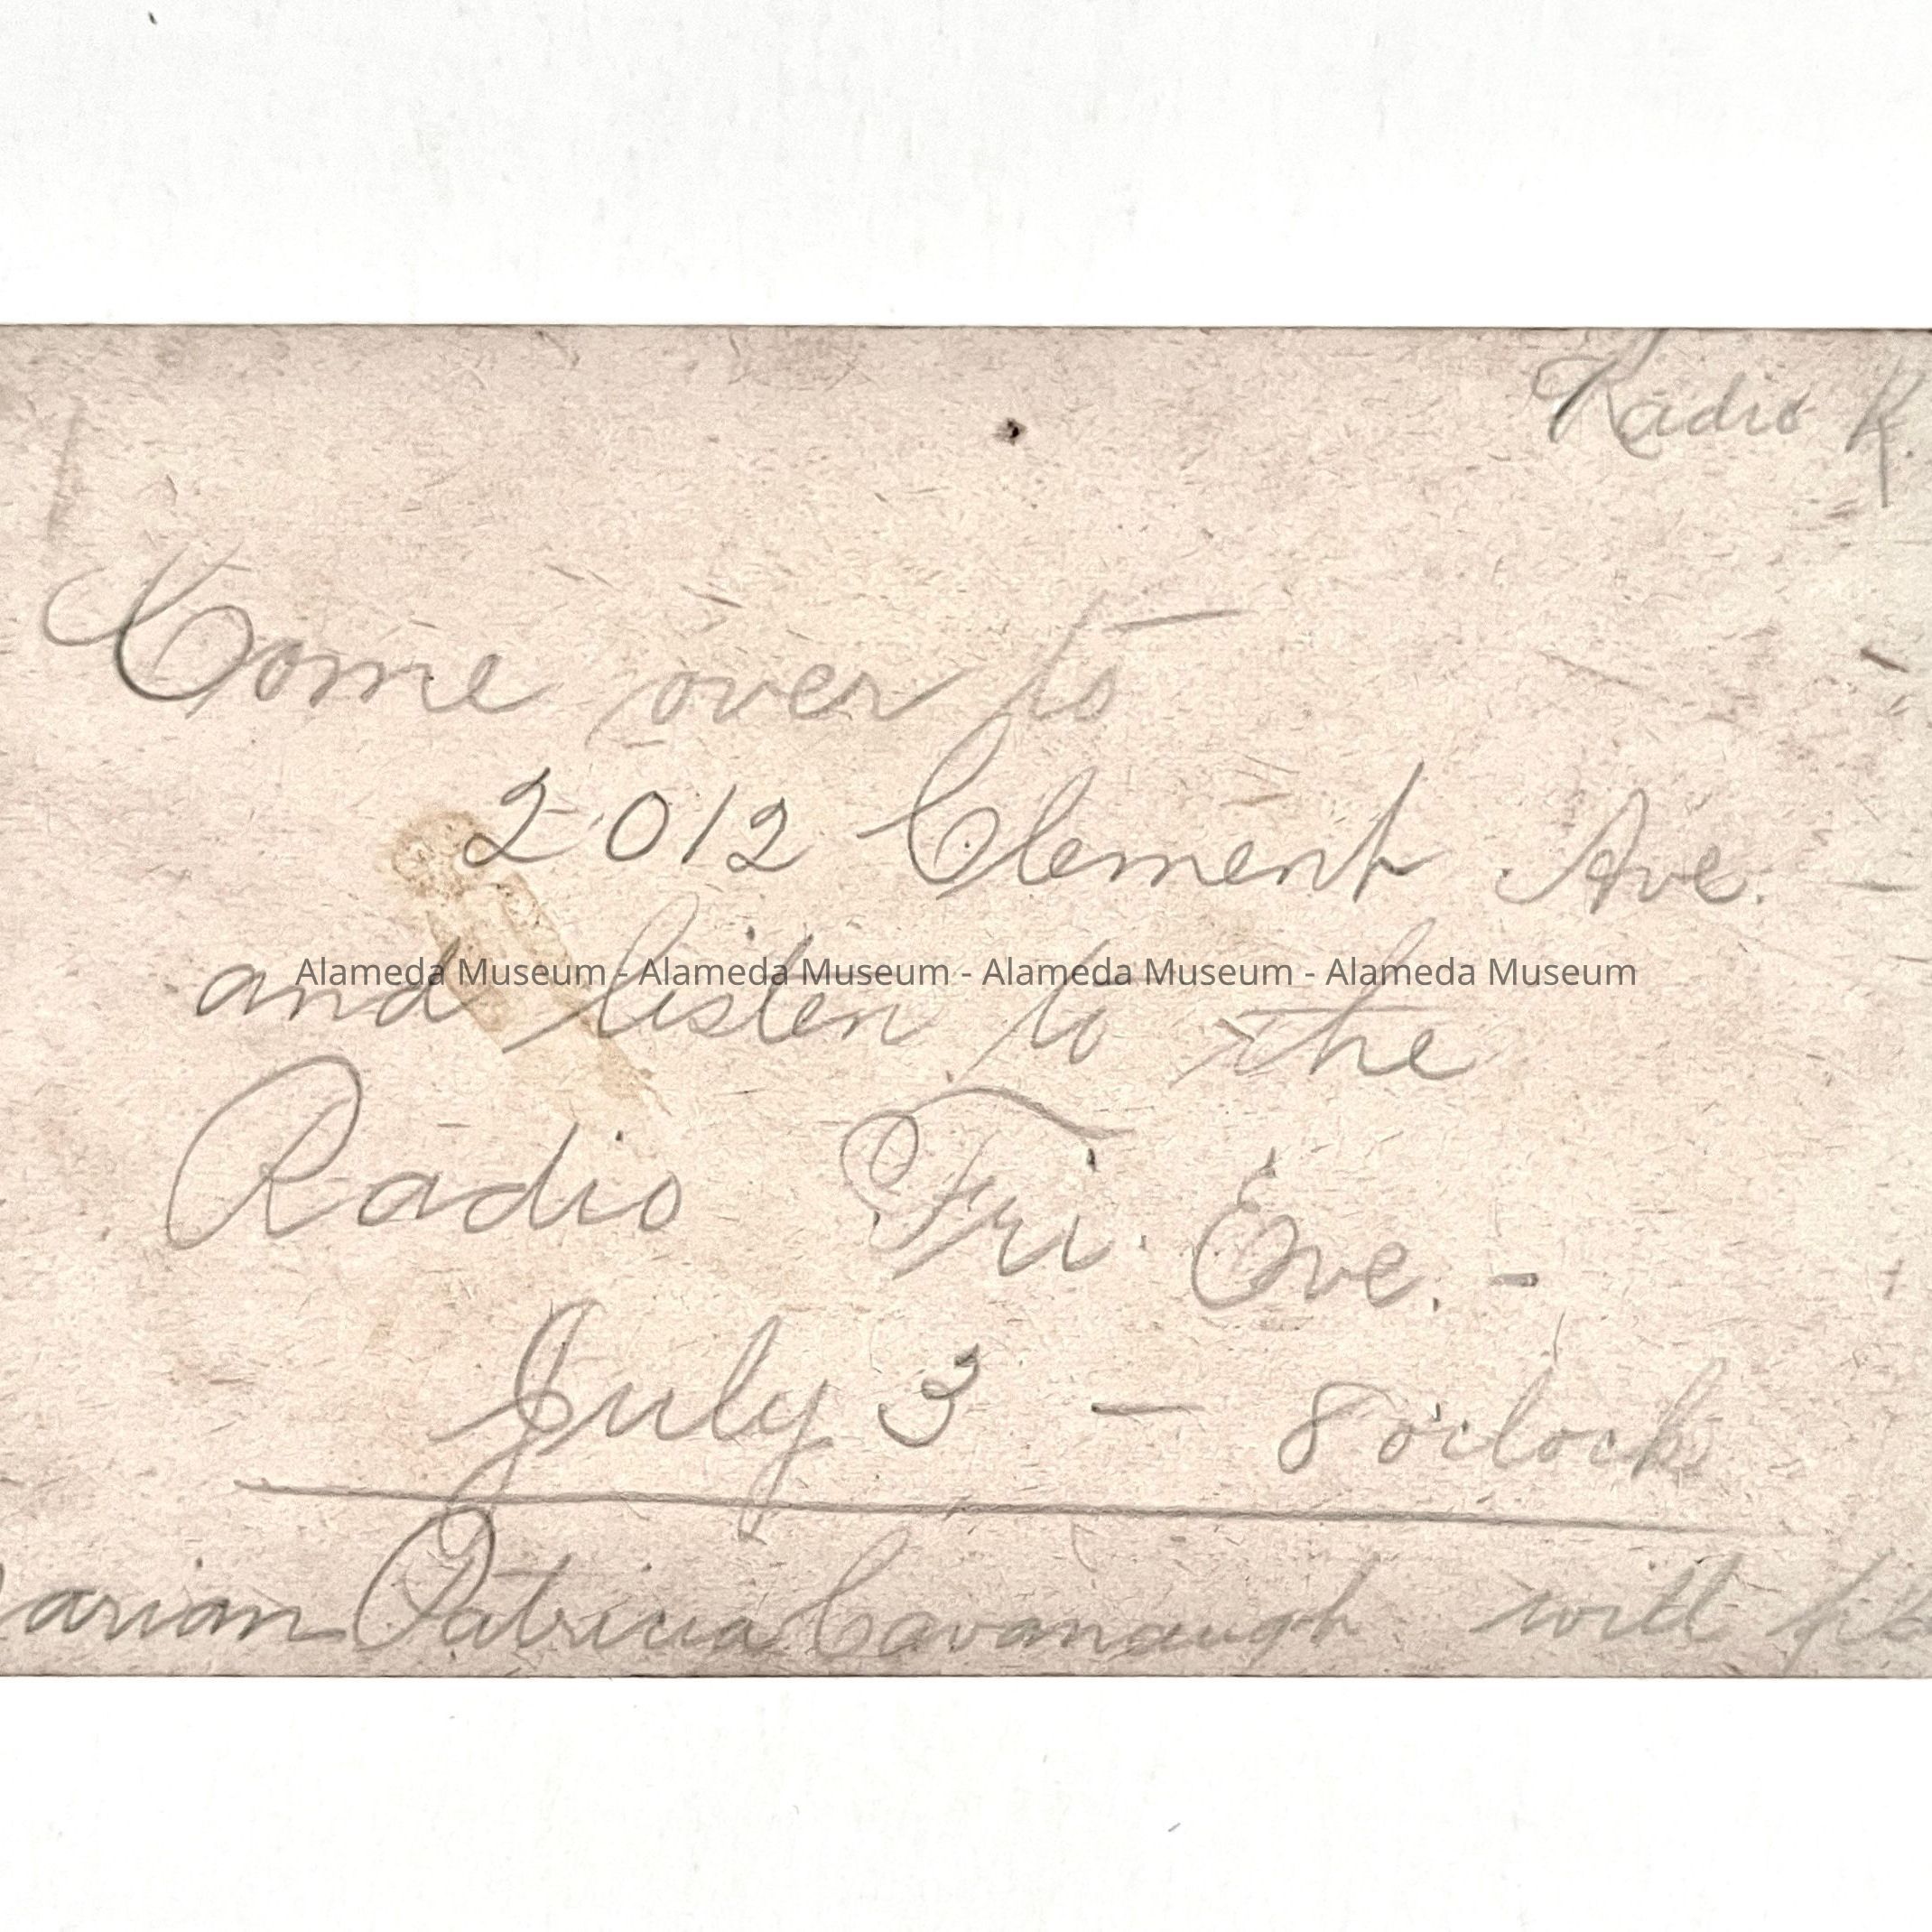 Radio K.
Come over to
2012 Clement Ave.
and listen to the
Alameda Museum - Alameda Museum - Alameda Museum - Alameda Museum
Radio Fri. Eve. -
July 3 - 8 o'clock
arian Patricia Cavanaugh will